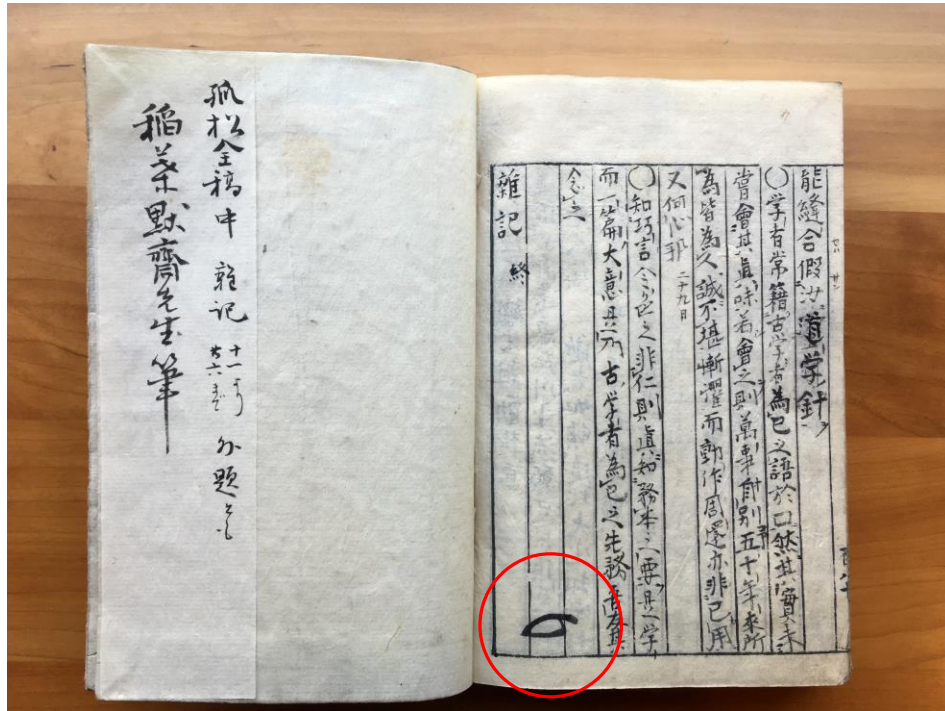 能縫合假染道学針
○学者常籍古学者為己之語於口然其實未
嘗會其眞味若會之則萬事自別五十年来所
為皆為人誠不堪慚懼而動作周還亦非己用
又何心耶 二十九日
○知巧言令色之非仁則眞知務本之要且学
而一篇大意具列古学者為己之先務吾友其
念之
雑記 終
孤松全稿中 雜記 十一ヨリ 廿六迄 外題とも
稲葉默齋先生筆